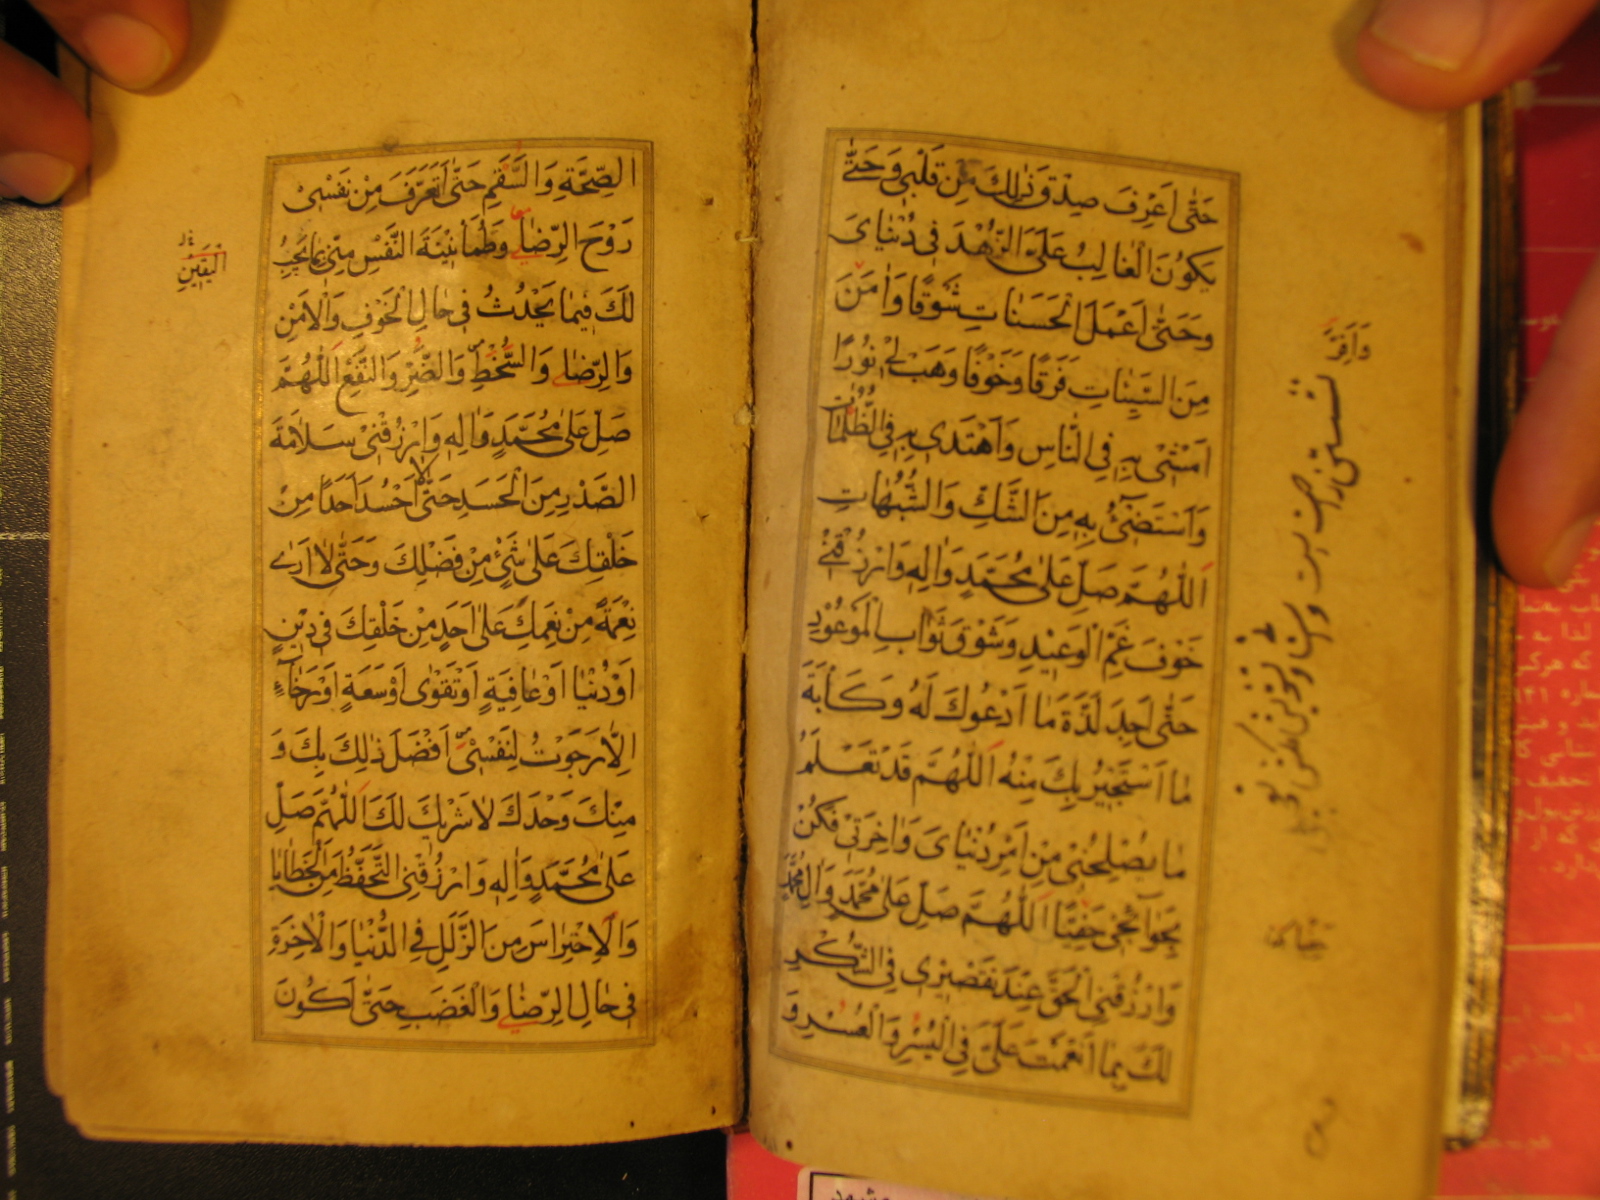 حَتّٰى اَعْرِفَ صِدْقَ ذٰلِكَ مِنْ قَلْبِي وَحَتّٰى
يَكُوْنَ الْغٰالِبُ عَلَيَّ الزُّهْدَ فِي دُنْيٰايَ
وَحَتّٰى اَعْمَلَ الْحَسَنٰاتِ شَوْقًا وَاٰمَنَ
مِنَ السَّيِّئٰاتِ فَرَقًا وَخَوْفًا وَهَبْ لِيْ نُوْرًا
اَمْشِيْ بِهٖ فِي النّٰاسِ وَاَهْتَدِيْ بِهٖ فِي الظُّلُمٰاتِ
وَاَسْتَضِيْئُ بِهٖ مِنَ الشَّكِّ وَالشُّبُهٰاتِ
اَللّٰهُمَّ صَلِّ عَلٰى مُحَمَّدٍ وَاٰلِهٖ وَارْزُقْنِيْ
خَوْفَ غَمِّ الْوَعِيْدِ وَشَوْقَ ثَوٰابِ الْمَوْعُوْدِ
حَتّٰى اَجِدَ لَذَّةَ مٰا اَدْعُوْكَ لَهُ وَكَاٰبَةَ
مٰا اَسْتَجِيْرُ بِكَ مِنْهُ اَللّٰهُمَّ قَدْ تَعْلَمُ
مٰا يُصْلِحُنِيْ مِنْ اَمْرِ دُنْيٰايَ وَاٰخِرَتِيْ فَكُنْ
بِحَوٰائِجِيْ حَفِيًّا اَللّٰهُمَّ صَلِّ عَلٰى مُحَمَّدٍ وَاٰلِ مُحَمَّدٍ
وَارْزُقْنِي الْحَقَّ عِنْدَ تَقْصِيْرِيْ فِي الشُّكْرِ
لَكَ بِمٰا اَنْعَمْتَ عَلَيَّ فِي الْيُسْرِ وَالْعُسْرِ وَ
الصِّحَّةِ وَالسَّقَمِ حَتّٰى اَتَعَرَّفَ مِنْ نَفْسِيْ
رَوْحَ الرِّضٰا وَطُمَأْنِيْنَةَ النَّفْسِ مِنِّيْ بِمٰا يَجِبُ
الْيَقِيْنِ
لَكَ فِيْمٰا يَحْدُثُ فِيْ حٰالِ الْخَوْفِ وَالْاَمْنِ
وَالرِّضٰا وَالسُّخْطِ وَالضُّرِّ وَالنَّفْعِ اَللّٰهُمَّ
صَلِّ عَلٰى مُحَمَّدٍ وَاٰلِهٖ وَارْزُقْنِيْ سَلٰامَةَ
الصَّدْرِ مِنَ الْحَسَدِ حَتّٰى لٰا اَحْسُدَ اَحَدًا مِنْ
خَلْقِكَ عَلٰى شَيْئٍ مِنْ فَضْلِكَ وَحَتّٰى لٰا اَرٰى
نِعْمَةً مِنْ نِعَمِكَ عَلٰى اَحَدٍ مِنْ خَلْقِكَ فِيْ دِيْنٍ
اَوْ دُنْيٰا اَوْ عٰافِيَةٍ اَوْ تَقْوٰى اَوْ سَعَةٍ اَوْ رَخٰاءٍ
اِلّٰا رَجَوْتُ لِنَفْسِيْ اَفْضَلَ ذٰلِكَ بِكَ وَ
مِنْكَ وَحْدَكَ لٰا شَرِيْكَ لَكَ اَللّٰهُمَّ صَلِّ
عَلٰى مُحَمَّدٍ وَاٰلِهٖ وَارْزُقْنِي التَّحَفُّظَ مِنَ الْخَطٰايٰا
وَالْاِحْتِرٰاسَ مِنَ الزَّلَلِ فِي الدُّنْيٰا وَالْاٰخِرَةِ
فِيْ حٰالِ الرِّضٰا وَالْغَضَبِ حَتّٰى اَكُوْنَ